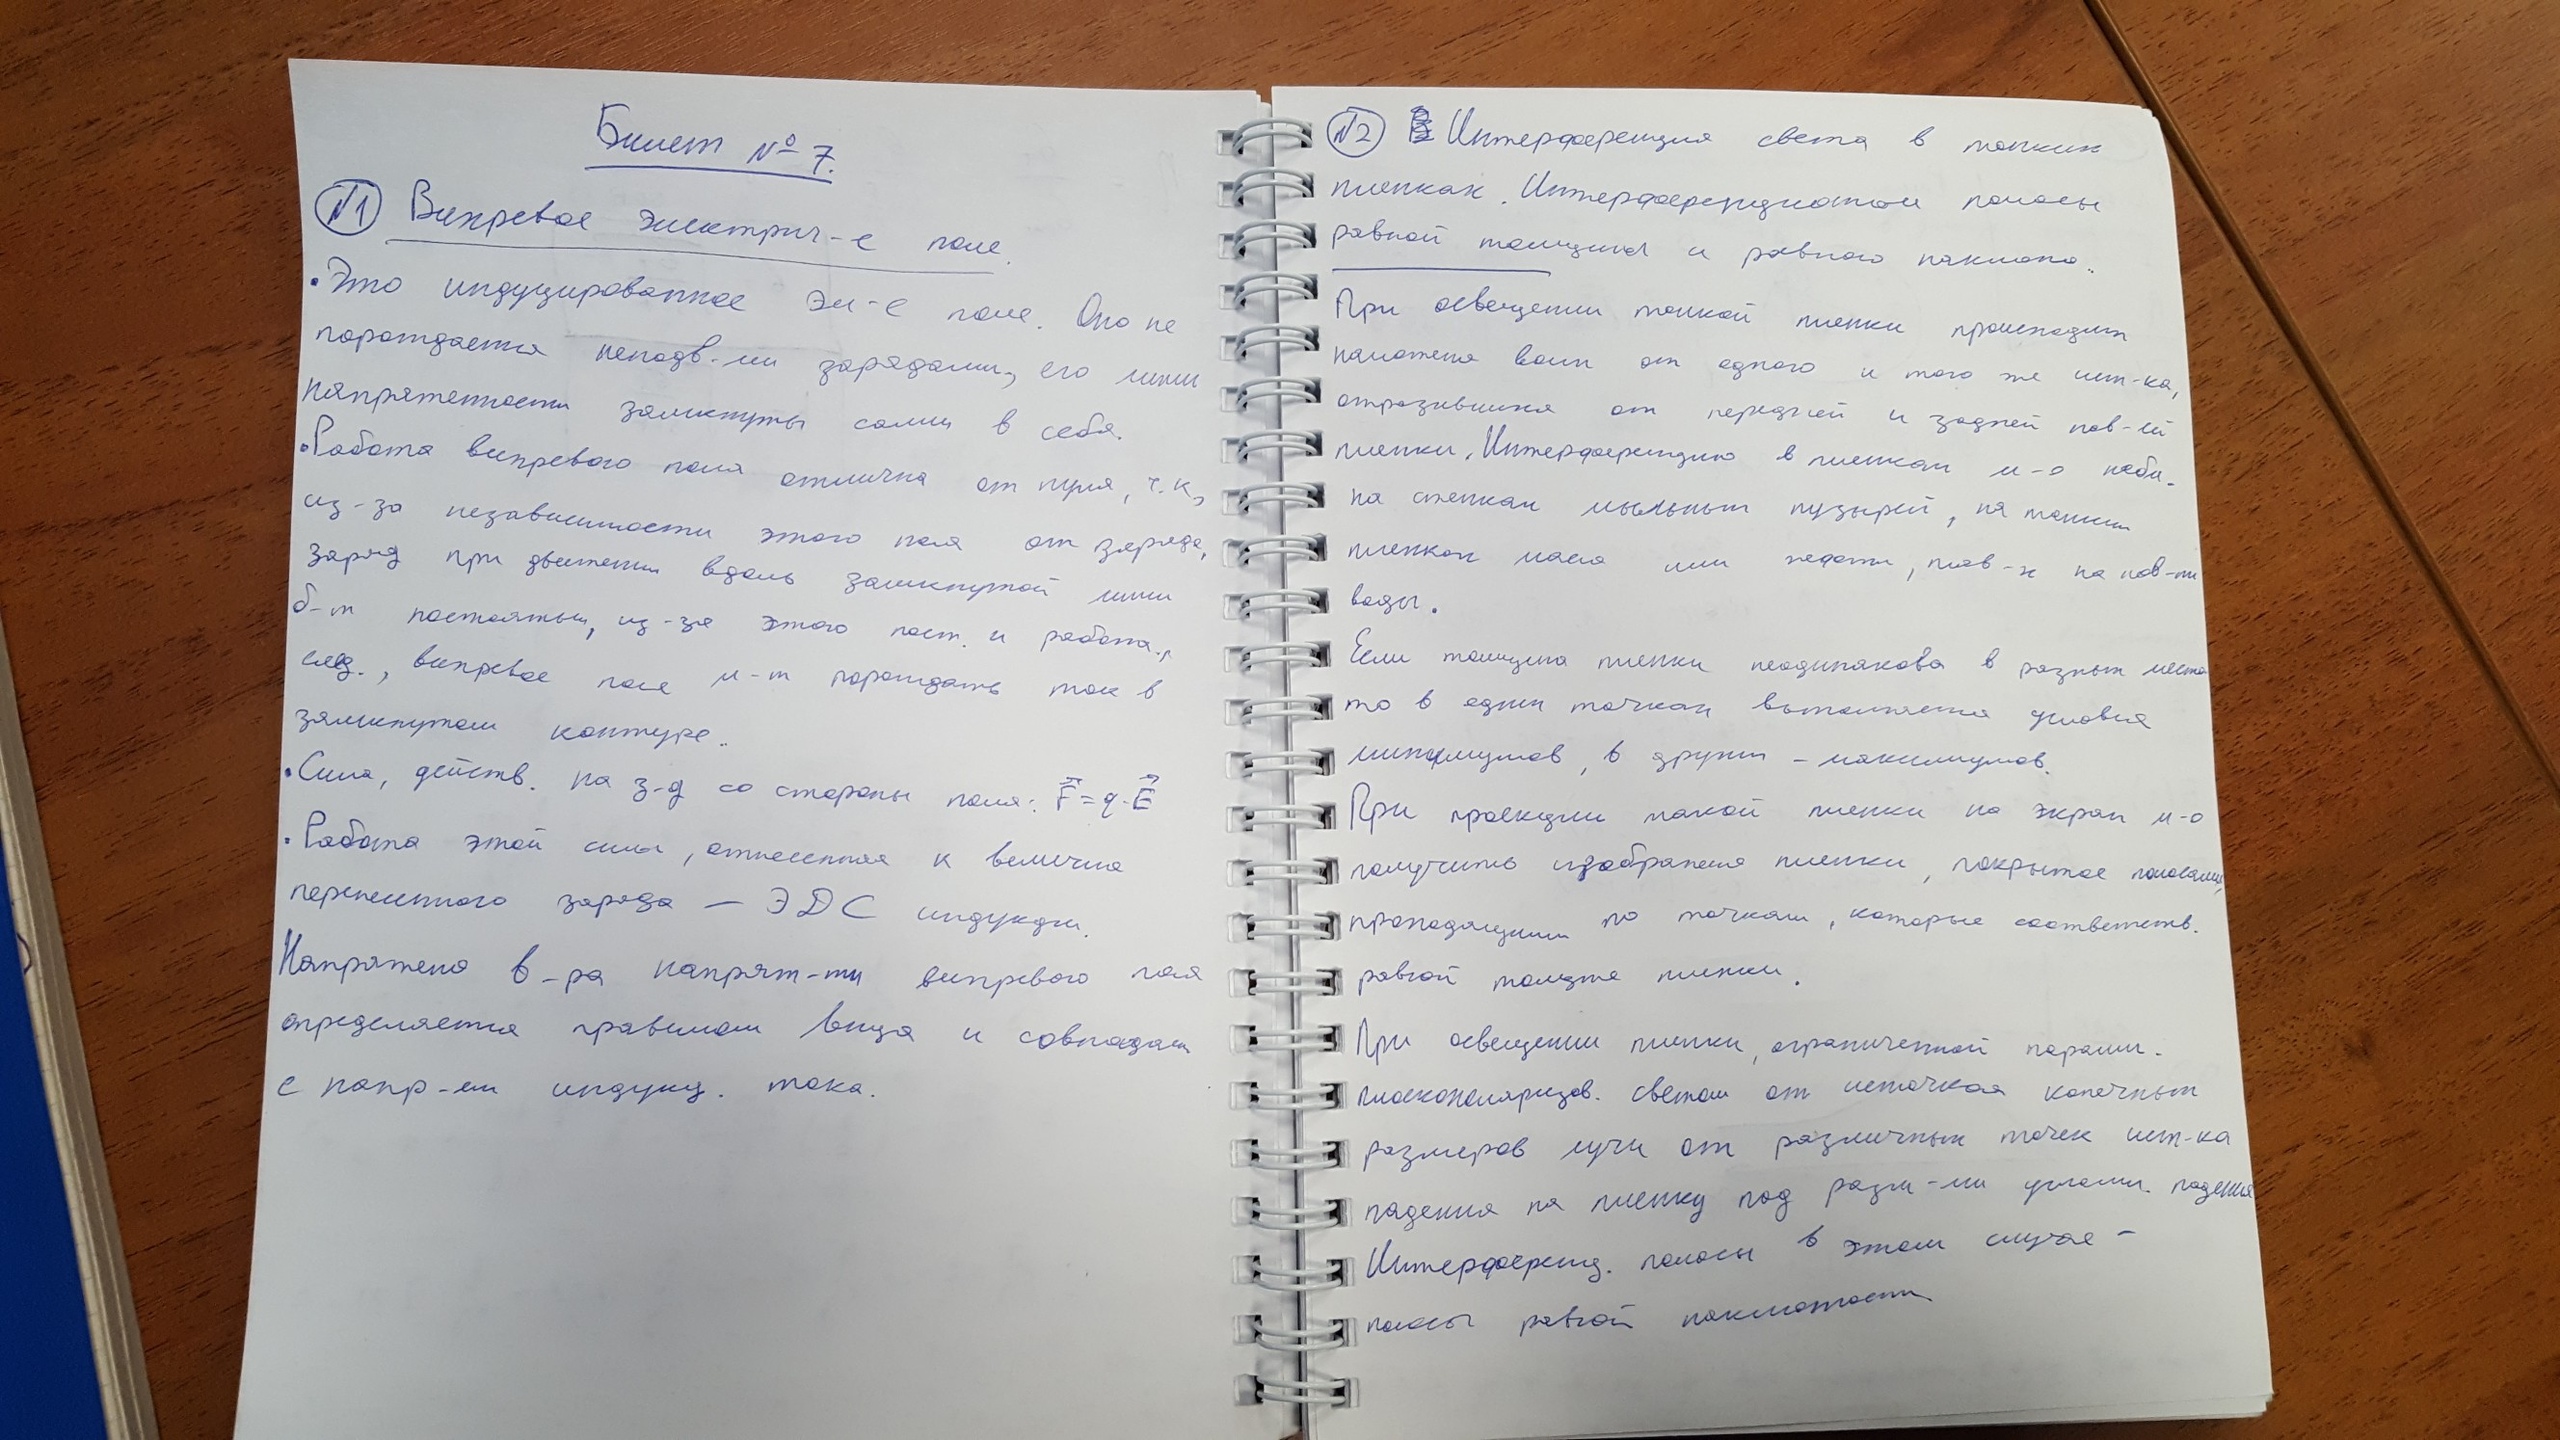 Билет № 7.
№1 Вихревое электрич-е поле.
• Это индуцированное эл-е поле. Оно не
порождается неподв-ми зарядами, его линии
напряженности замкнуты сами в себя.
• Работа вихревого поля отлична от нуля, т.к,
из-за независимости этого поля от заряда,
заряд при движении вдоль замкнутой линии
б-т постоянным, из-за этого пост. и работа.,
след., вихревое поле м-т порождать ток в
замкнутом контуре.
• Сила, действ. на з-д со стороны поля: F = q · E
• Работа этой силы, отнесенная к величине
перенесенного заряда — ЭДС индукции.
Направление в-ра напряж-ти вихревого поля
определяется правилом винта и совпадает
с напр-ем индукц. тока.
№2 Интерференция света в тонких
пленках. Интерференционные полосы
равной толщины и равного наклона.
При освещении тонкой пленки происходит
наложение волн от одного и того же ист-ка,
отразившихся от передней и задней пов-ей
пленки. Интерференцию в пленках м-о набл.
на стенках мыльных пузырей, на тонких
пленках масла или нефти, плав-х на пов-ти
воды.
Если толщина пленки неодинакова в разных места
то в одних точках выполняется условия
минимумов, в других - максимумов.
При проекции такой пленки на экран м-о
получить изображение пленки, покрытое полосами,
проходящими по точкам, которые соответств.
равной толщине пленки.
При освещении пленки, ограниченной паралл.
плоскополяризов. светом от источника конечных
размеров лучи от различных точек ист-ка
падения на пленку под разл-ми углами. падения
Интерференц. полосы в этом случае -
полосы равной наклонности